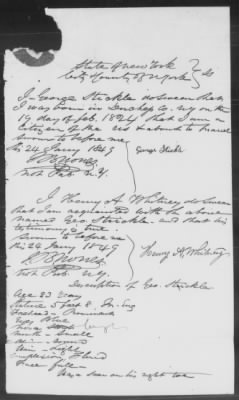 State of New York
City & County of N York } SS
I George Strickle do swear that
I was born in Duchess Co. N.Y. on the
19 day of feb. 1824 that I am a
citizen of the US & about to travel
Sworn to before me
this 24 Jany 1849 George Strickle
Not Pub. N.Y.
I Henry A Whitney do swear
that I am acquainted with the above
named Geo. Strickle and that his
testimony is true
Sworn to before me
this 24 Jany 1849 Henry A. Whitney
Not Pub. N.Y.
Description of Geo. Strickle
Age 23 Years
Stature 5 feet 8 In. Eng
Forehead - Prominent
Eyes Blue
Nose large
Mouth - Small
Chin - round
Hair - Light
Complexion Florid
Face full -
Has a scar on his right